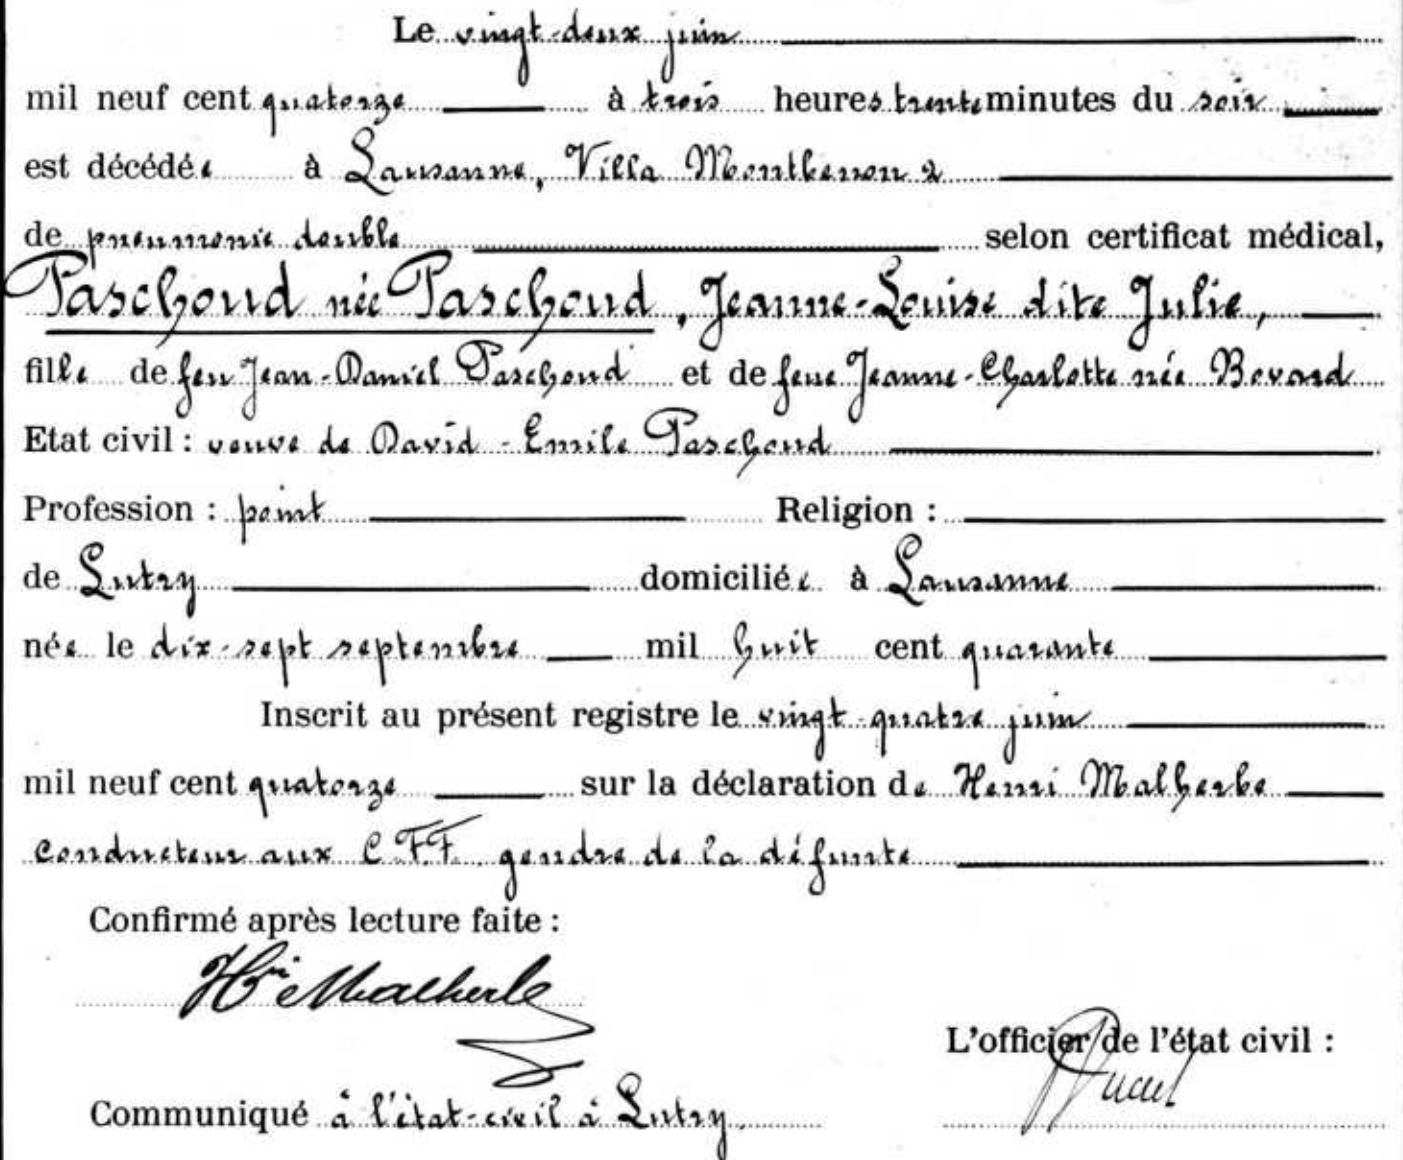 Le vingt-deux juin
mil neuf cent quatorze à trois heures trente minutes du soir
est décédée à Lausanne, Villa Montbenon 2
de pneumonie double selon certificat médical,
Paschoud née Paschoud, Jeanne-Louise dite Julie,
fille de feu Jean-Daniel Paschoud et de feue Jeanne-Charlotte née Bovard
Etat civil : veuve de David-Emile Paschoud
Profession : point Religion :
de Lutry domiciliée à Lausanne
née le dix-sept septembre mil huit cent quarante
Inscrit au présent registre le vingt-quatre juin
mil neuf cent quatorze sur la déclaration de Henri Malherbe
conducteur aux C.F.F. gendre de la défunte
Confirmé après lecture faite :
Hri Malherbe
L'officier de l'état civil :
Communiqué à l'état-civil à Lutry.